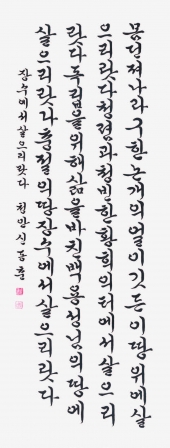 몸던져나라구한논개의얼이깃든이땅위에살
으리랏다청렴과청빈한황희의터에서살으리
랏다독립을위해삶을바친백용성님의땅에
살으리랏다충절의땅장수에서살으리랏다
장수에서살으리랏다 천안